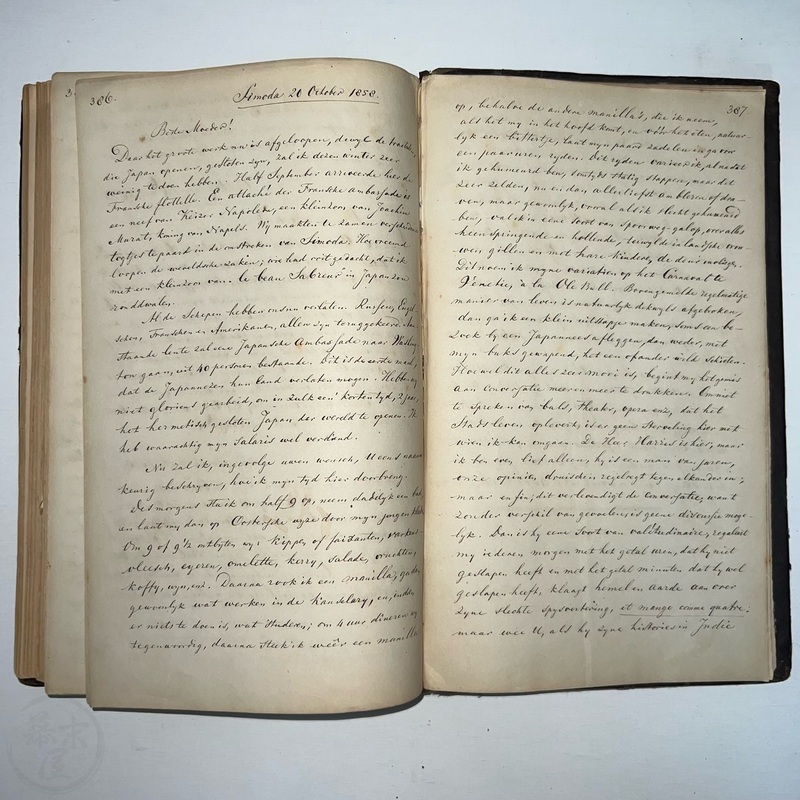 386.
Simoda 20 October 1858.
Beste Moeder!
Daar het groote werk nu is afgeloopen, dewyl de tractaten,
die Japan openen, gesloten zyn, zal ik dezen winter zeer
weinig te doen hebben. Half September arriveerde hier de
Fransche flotille. Een attaché der Fransche ambassade is
een neef van Keizer Napoleon, een kleinzoon van Joachim
Murat, koning van Napels. Wy maakten te zamen verscheidene
togtjes te paard in de omstreken van Simoda. Hoe vreemd
loopen de wereldsche zaken; wie had ooit gedacht, dat ik
met een kleinzoon van "le beau Sabreur" in Japan zou
ronddwalen.
Al de Schepen hebben ons nu verlaten. Russen, Engel-
schen, Franschen en Amerikanen, allen zyn teruggekeerd. Aan-
staande lente zal eene Japansche Ambassade naar Washing-
ton gaan, uit 40 personen bestaande. Dit is de eerste maal,
dat de Japannezen hun land verlaten mogen. Hebben wy
niet glorieus gearbeid, om in zulk een' korten tyd, 2 jaar,
het hermetisch gesloten Japan der wereld te openen. Ik
heb waarachtig myn Salaris wel verdiend.
Nu zal ik, ingevolge uwen wensch, U eens nauw-
keurig beschryven, hoe ik myn tyd hier doorbreng.
Des morgens sta ik om half 9 op, neem dadelyk een bad
en laat my dan op Oostersche wyze door myn jongen
Om 9 of 9½ ontbyten wy: kippen of faisanten, varkens
vleesch, eyeren, omelette, kerry, salade, vruchten,
koffy, wyn, enz. Daarna rook ik een manilla, ga dan
gewoonlyk wat werken in de kanselary, en, indien
er niets te doen is, wat studeren; om 4 uur dineren wy
tegenwoordig, daarna steek ik weêr een manilla
387
op, behalve de andere manilla's, die ik neem,
als het my in het hoofd komt, en vóór het eten, natuur-
lyk een bittertje, laat myn paard zadelen en ga voor
een paar uren ryden. Het ryden varieer ik, al nadat
ik gehumeurd ben, somtyds statig stappen, maar dit
zeer zelden, nu en dan allerliefst ambleren of dra-
ven, maar gewoonlyk, vooral als ik slecht gehumeurd
ben, val ik in eene soort van spoorweg-galop, over alles
heen springende en hollende, terwyl de inlandsche vrou-
wen gillen en met hare kinderen, de deur
Dit noem ik myne variatien op het Carnaval te
Venetien, à la Ole Bull. Bovengemelde regelmatige
manier van leven is natuurlyk dikwyls afgebroken,
dan ga ik een klein uitstapje maken, soms een be-
zoek by een Japannees afleggen, dan weder, met
myn buks gewapend, het een of ander wild schieten.
Hoewel dit alles zeer mooi is, begint my het gemis
aan conversatie meer en meer te drukken. Om niet
te spreken van bals, theater, opera enz, dat het
stadsleven oplevert, is er geen sterveling hier met
wien ik kan omgaan. De Heer Harris is hier, maar
ik ben even lief alleen, hy is een man van jaren,
onze opinies druischen regelregt tegen elkander in;
maar enfin, dit verlevendigt de conversatie, want
zonder verschil van gevoelen is geene discussie moge-
lyk. Dan is hy eene soort van valetudinaire, regaleert
my iederen morgen met het getal uren, dat hy niet
geslapen heeft en met het getal minuten dat hy wel
geslapen heeft, klaagt hemel en aarde aan over
zyne slechte spysvertering, et mange comme quatre;
maar wee U, als hy zyne histories in Indie